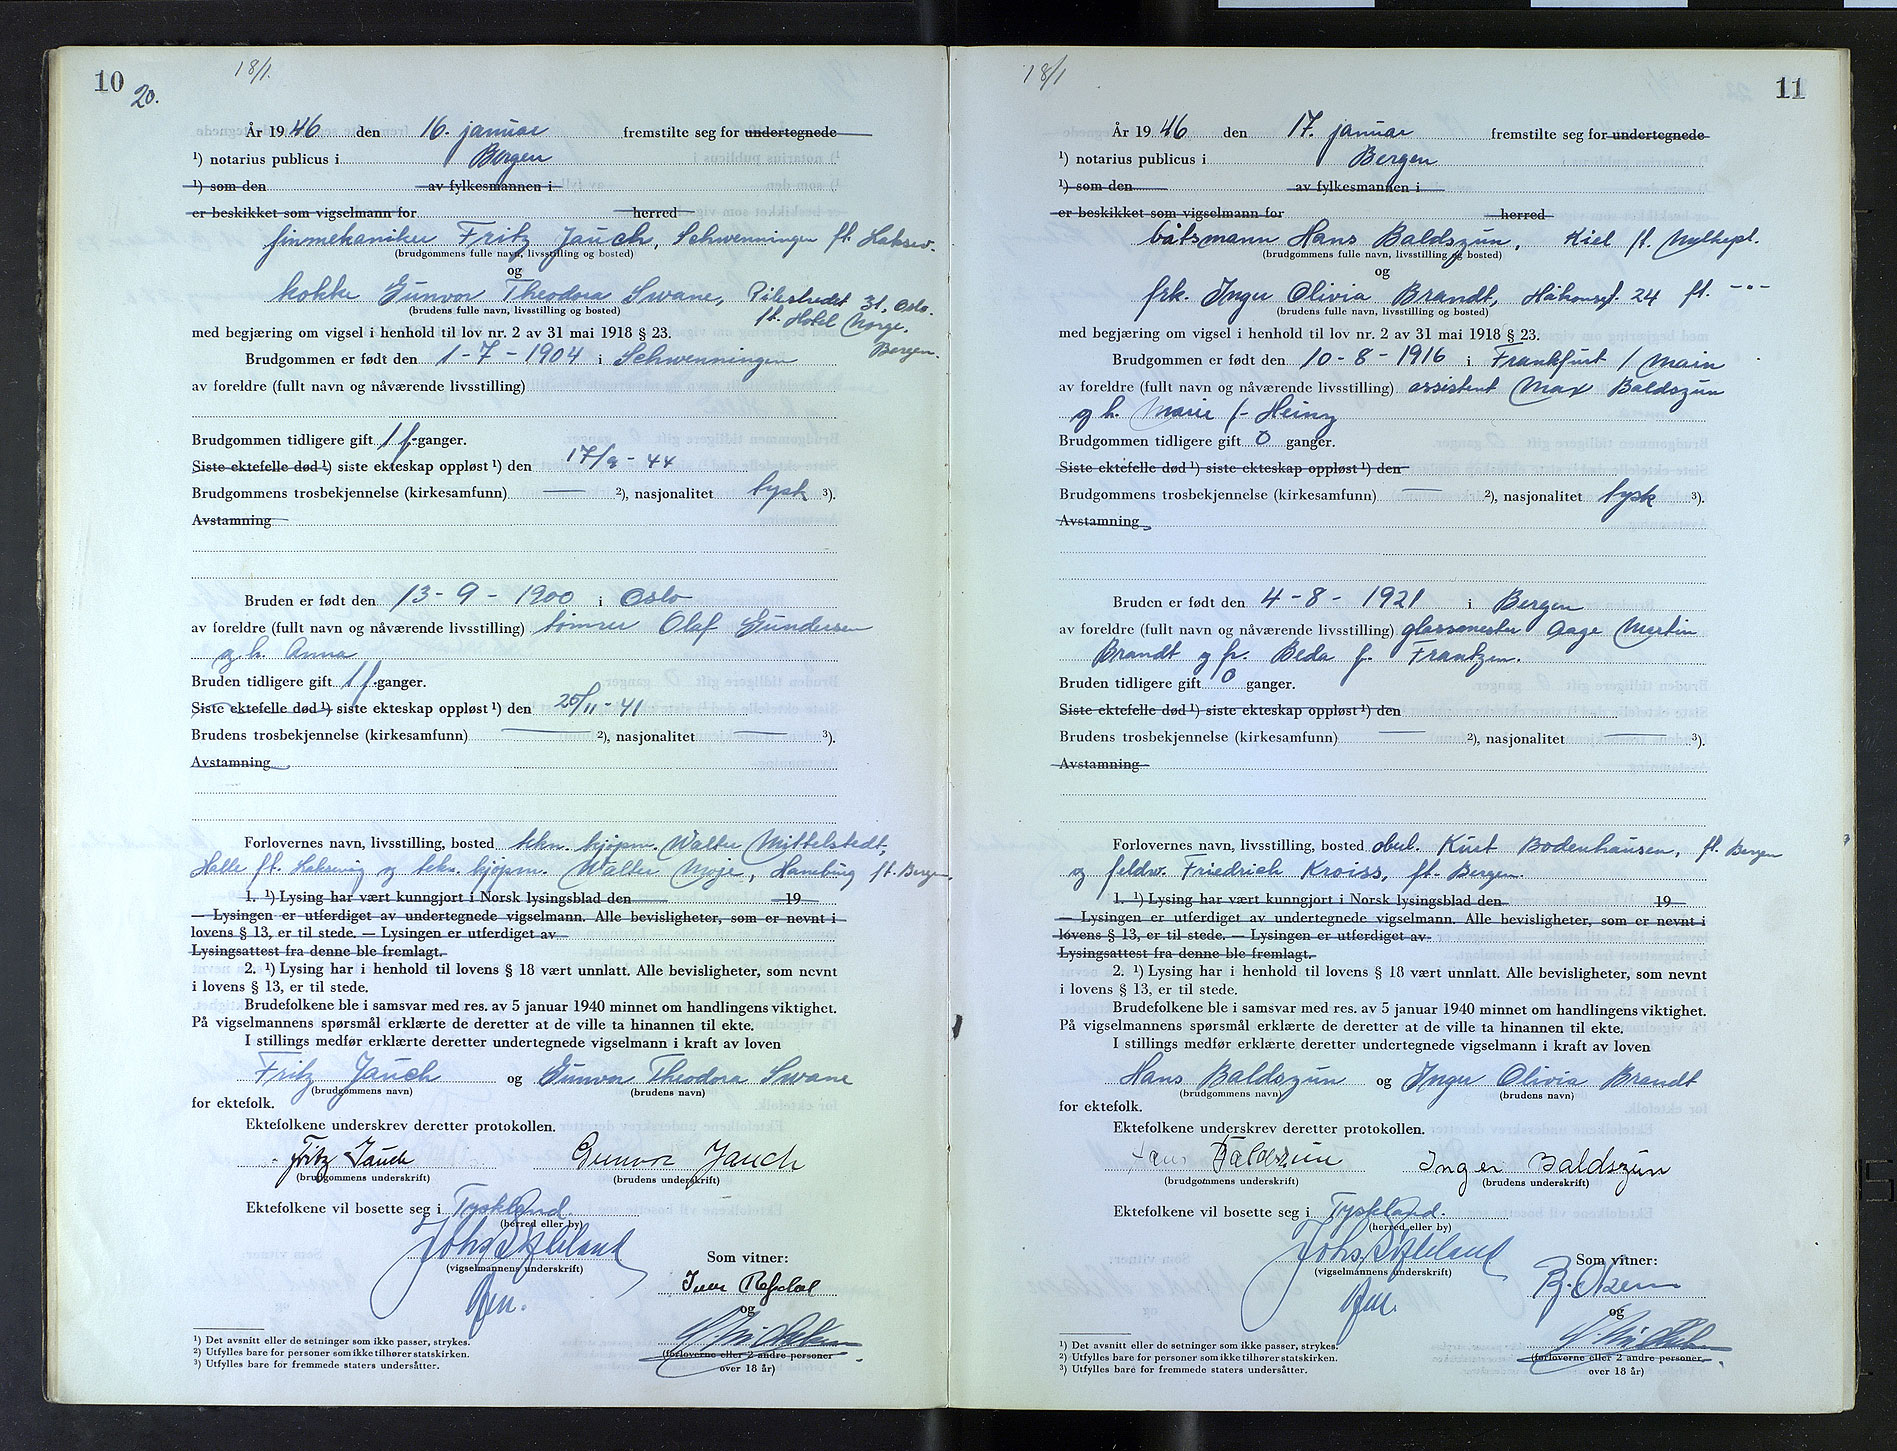 10
20.
18/1
År 1946 den 16. januar fremstilte seg for undertegnede
¹) notarius publicus i Bergen
¹) som den av fylkesmannen i
er beskikket som vigselmann for herred
finmekaniker Fritz Jauch, Schwenningen ft. Laksev.
(brudgommens fulle navn, livsstilling og bosted)
og
kokke Gunvor Theodora Swane, Pilestredet 31, Oslo.
(brudens fulle navn, livsstilling og bosted)
ft. Hotel Norge,
Bergen.
med begjæring om vigsel i henhold til lov nr. 2 av 31 mai 1918 § 23.
Brudgommen er født den 1-7-1904 i Schwenningen
av foreldre (fullt navn og nåværende livsstilling)
Brudgommen tidligere gift 1 f. ganger.
Siste ektefelle død ¹) siste ekteskap oppløst ¹) den 17/9-44
Brudgommens trosbekjennelse (kirkesamfunn) — ²), nasjonalitet tysk ³).
Avstamning
Bruden er født den 13-9-1900 i Oslo
av foreldre (fullt navn og nåværende livsstilling) tømrer Olaf Gundersen
og h. Anna
Bruden tidligere gift 1 f. ganger.
Siste ektefelle død ¹) siste ekteskap oppløst ¹) den 25/11-41
Brudens trosbekjennelse (kirkesamfunn) — ²), nasjonalitet — ³).
Avstamning
Forlovernes navn, livsstilling, bosted tekn. kjøpm. Walter Mittelstedt,
Halle ft. Laksevåg og tekn. kjøpm. Walter Moje, Hamburg ft. Bergen.
1. ¹) Lysing har vært kunngjort i Norsk lysingsblad den 19
— Lysingen er utferdiget av undertegnede vigselmann. Alle bevisligheter, som er nevnt i
lovens § 13, er til stede. — Lysingen er utferdiget av
Lysingsattest fra denne ble fremlagt.
2. ¹) Lysing har i henhold til lovens § 18 vært unnlatt. Alle bevisligheter, som nevnt
i lovens § 13, er til stede.
Brudefolkene ble i samsvar med res. av 5 januar 1940 minnet om handlingens viktighet.
På vigselmannens spørsmål erklærte de deretter at de ville ta hinannen til ekte.
I stillings medfør erklærte deretter undertegnede vigselmann i kraft av loven
Fritz Jauch og Gunvor Theodora Swane
(brudgommens navn) (brudens navn)
for ektefolk.
Ektefolkene underskrev deretter protokollen.
Fritz Jauch Gunvor Jauch
(brudgommens underskrift) (brudens underskrift)
Ektefolkene vil bosette seg i Tyskland.
(herred eller by)
(vigselmannens underskrift)
Som vitner:
og
(forloverne eller 2 andre personer
over 18 år)
¹) Det avsnitt eller de setninger som ikke passer, strykes.
²) Utfylles bare for personer som ikke tilhører statskirken.
³) Utfylles bare for fremmede staters undersåtter.
18/1
11
År 1946 den 17. januar fremstilte seg for undertegnede
¹) notarius publicus i Bergen
¹) som den av fylkesmannen i
er beskikket som vigselmann for herred
båtsmann Hans Baldszun, Kiel ft.
(brudgommens fulle navn, livsstilling og bosted)
og
frk. Inger Olivia Brandt, Håkonsgt. 24 ft. -"-
(brudens fulle navn, livsstilling og bosted)
med begjæring om vigsel i henhold til lov nr. 2 av 31 mai 1918 § 23.
Brudgommen er født den 10-8-1916 i Frankfurt / Main
av foreldre (fullt navn og nåværende livsstilling) assistent Max Baldszun
og h. Marie f. Heinz
Brudgommen tidligere gift 0 ganger.
Siste ektefelle død ¹) siste ekteskap oppløst ¹) den
Brudgommens trosbekjennelse (kirkesamfunn) — ²), nasjonalitet tysk ³).
Avstamning
Bruden er født den 4-8-1921 i Bergen
av foreldre (fullt navn og nåværende livsstilling) glassmester Aage Martin
Brandt og fr. Beda f. Frantzen.
Bruden tidligere gift 0 ganger.
Siste ektefelle død ¹) siste ekteskap oppløst ¹) den
Brudens trosbekjennelse (kirkesamfunn) — ²), nasjonalitet — ³).
Avstamning
Forlovernes navn, livsstilling, bosted Kurt Bodenhausen, ft. Bergen
og feldw. Friedrich Kroiss, ft. Bergen.
1. ¹) Lysing har vært kunngjort i Norsk lysingsblad den 19
— Lysingen er utferdiget av undertegnede vigselmann. Alle bevisligheter, som er nevnt i
lovens § 13, er til stede. — Lysingen er utferdiget av
Lysingsattest fra denne ble fremlagt.
2. ¹) Lysing har i henhold til lovens § 18 vært unnlatt. Alle bevisligheter, som nevnt
i lovens § 13, er til stede.
Brudefolkene ble i samsvar med res. av 5 januar 1940 minnet om handlingens viktighet.
På vigselmannens spørsmål erklærte de deretter at de ville ta hinannen til ekte.
I stillings medfør erklærte deretter undertegnede vigselmann i kraft av loven
Hans Baldszun og Inger Olivia Brandt
(brudgommens navn) (brudens navn)
for ektefolk.
Ektefolkene underskrev deretter protokollen.
Hans Baldszun Inger Baldszun
(brudgommens underskrift) (brudens underskrift)
Ektefolkene vil bosette seg i Tyskland.
(herred eller by)
(vigselmannens underskrift)
Som vitner:
og
(forloverne eller 2 andre personer
over 18 år)
¹) Det avsnitt eller de setninger som ikke passer, strykes.
²) Utfylles bare for personer som ikke tilhører statskirken.
³) Utfylles bare for fremmede staters undersåtter.